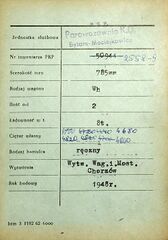 Jednostka służbowa
Parowozownia K.D.
Bytom-
Nr inwentarza PKP 50944 2558-9
Szerokość toru 785mm
Rodzaj wagonu Wh
Ilość osi 2
Ładowność w t. 8t.
Ciężar własny 4680
Rodzaj hamulca ręczny
Wytwórnia Wytw. Wag. i Most.
Chorzów
Rok budowy 1948r.